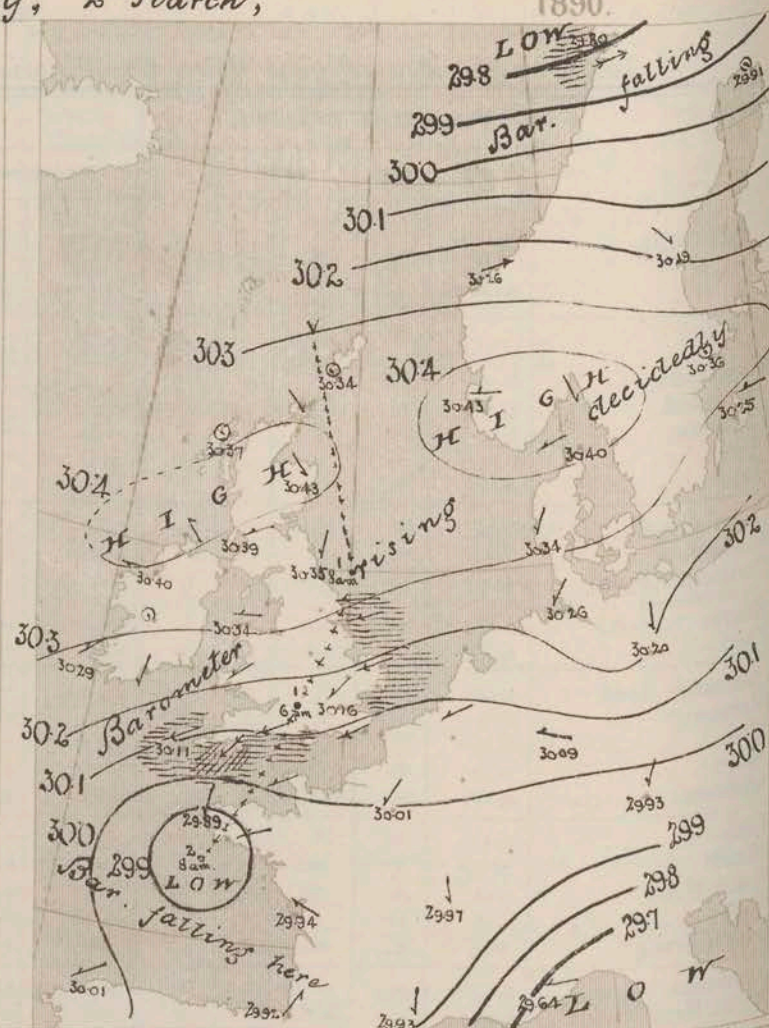 2 March,
1890.
LOW
29.80
29.8
falling
29.91
29.9
Bar.
30.0
30.1
30.2
30.19
30.26
30.3
30.34
30.4
HIGH
decidedly
30.36
30.43
30.25
30.40
30.37
30.4
HIGH
30.43
30.39
30.40
30.35
8am
rising
30.34
30.2
30.26
30.3
30.34
30.29
30.20
Barometer
30.1
6am
30.16
30.2
30.11
30.09
30.0
30.1
30.01
29.93
30.0
29.89
29.9
29.9
2
8am.
LOW
29.8
Bar. falling here
29.94
29.97
29.7
30.01
29.92
29.93
29.64
LOW